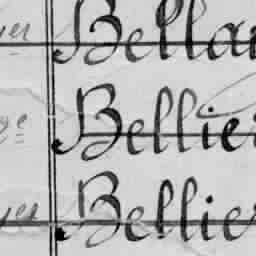 Bella
Bellie
Bellie